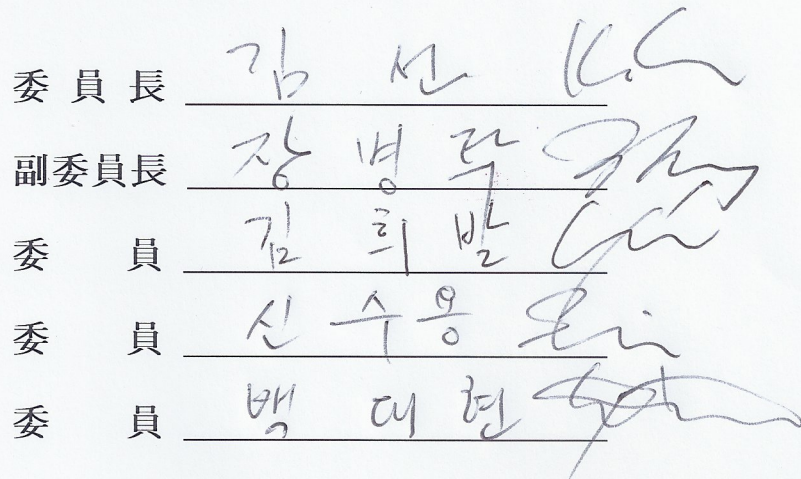 委員長 김 선
副委員長 장 병 탁
委 員 김 희 발
委 員 신 수 용
委 員 백 대 현